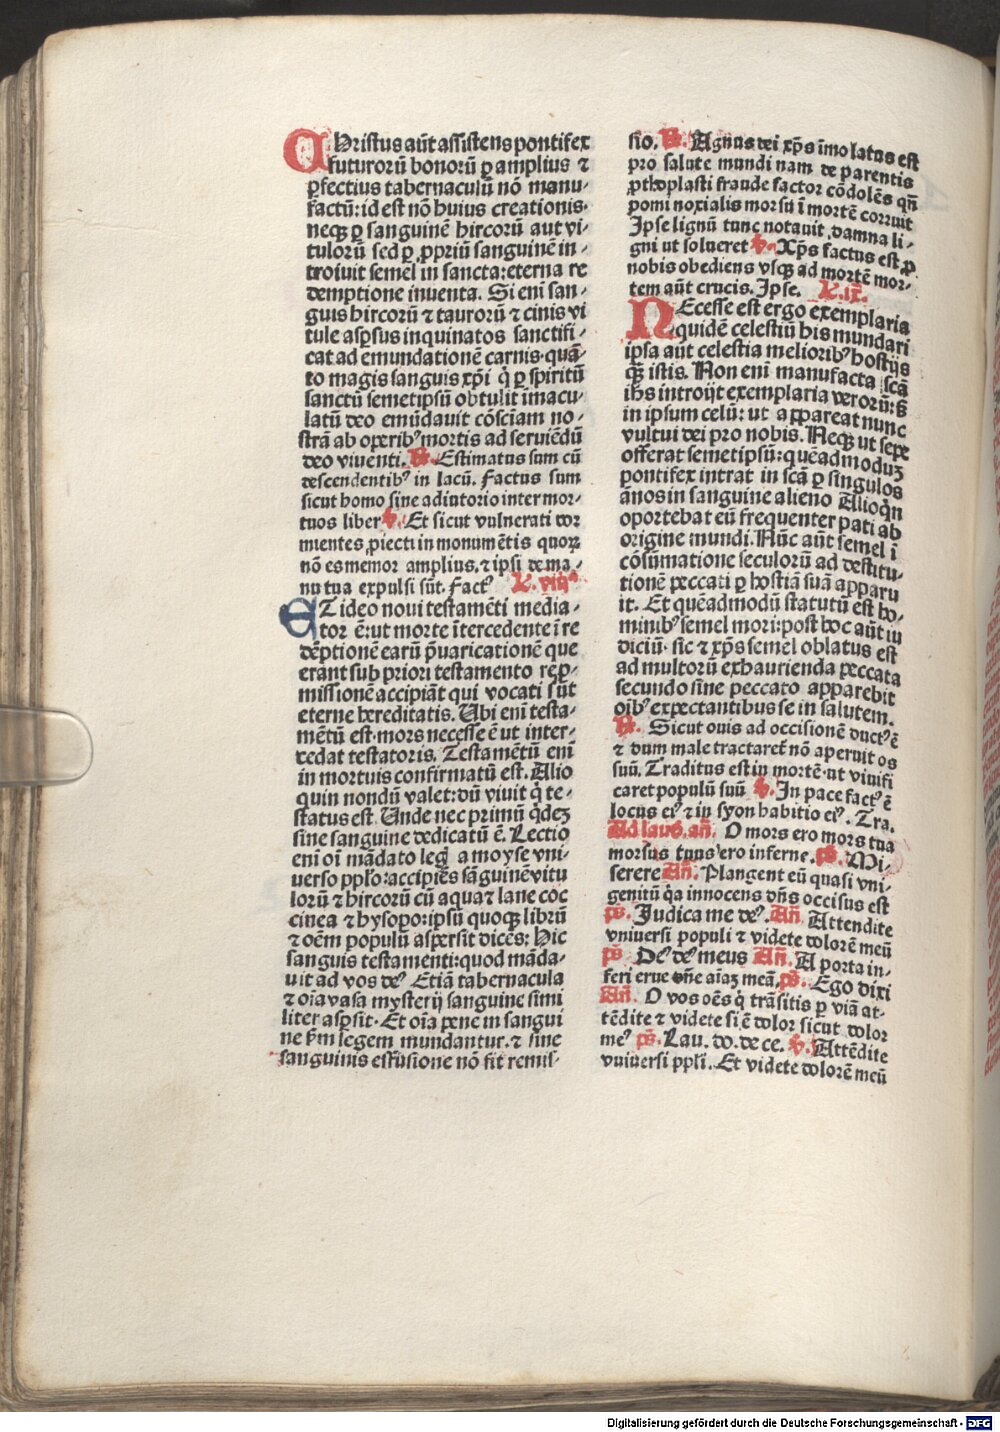 CHristus aūt assistens pontifex
futurorū bonorū ꝑ amplius ⁊
ꝑfectius tabernaculū nō manu-
factū: id est nō huius creationis·
necꝗ ꝑ sanguinē hircorū aut vi-
tulorū sed ꝑ ꝓpriū sanguinē in-
troiuit semel in sancta: eterna re
demptione inuenta. Si eni san-
guis hircorū ⁊ taurorū ⁊ cinis vi
tule aspsus inquinatos sanctifi-
cat ad emundationē carnis· quā-
to magis sanguis xp̄i q̇ ꝑ spiritū
sanctū semetipsū obtulit īmacu-
latū deo emūdauit cōsciam no-
strā ab operibꝰ mortis ad seruiēdū
deo viuenti. R̄. Estimatus sum cū
descendentibꝰ in lacū. Factus sum
sicut homo sine adiutorio inter mor-
tuos liber. v̄. Et sicut vulnerati dor
mientes ꝓiecti in monumētis quoꝝ
nō es memor amplius, ⁊ ipsi de ma-
nu tua expulsi sūt. Factꝰ L. viijᵃ
ET ideo noui testamēti media-
tor ē: ut morte ītercedente ī re
dēptionē earū p̄uaricationē que
erant sub priori testamento rep-
missionē accipiāt qui vocati sūt
eterne hereditatis. Ubi eni testa-
mētū est· mors necesse ē ut inter-
cedat testatoris. Testamētū eni
in mortuis confirmatū est. Alio
quin nondū valet: dū viuit q̇ te-
status est. Unde nec primū q̇dez
sine sanguine dedicatū ē. Lectio
eni oī mādato leg̣ a moyse vni-
uerso pplo: accipiēs sāguinē vitu
lorū ⁊ hircorū cū aqua ⁊ lane coc
cinea ⁊ hysopo: ipsū quoqꝫ librū
⁊ oēm populū aspersit dicēs: Hic
sanguis testamenti: quod māda-
uit ad vos deꝰ Etiā tabernacula
⁊ oīa vasa mysterij sanguine simi
liter aspsit· Et oīa pene in sangui
ne ẜm legem mundantur. ⁊ sine
sanguinis effusione nō fit remis-
sio. R̄. Agnus dei xp̄s īmolatus est
pro salute mundi nam de parentis
ꝓthoplasti fraude factor cōdolēs qn̄
pomi noxialis morsu ī mortē corruit
Ipse lignū tunc notauit, damna li-
gni ut solueret v̄. Xp̄s factus est ꝓ
nobis obediens vsqꝫ ad mortē mor-
tem aūt crucis. Ipse. L. ix.
NEcesse est ergo exemplaria
quidē celestiū his mundari
ipsa aūt celestia melioribꝰ hostijs
qꝫ istis. Non eni manufacta scā
ihs introijt exemplaria verorū: ẜ
in ipsum celū: ut appareat nunc
vultui dei pro nobis. Neqꝫ ut sepe
offerat semetipsū: quēadmoduꝫ
pontifex intrat in scā ꝑ singulos
ānos in sanguine alieno Alioqn̄
oportebat eū frequenter pati ab
origine mundi. Nūc aūt semel ī
cōsūmatione seculorū ad destitu-
tionē peccati ꝑ hostiā suā apparu
it. Et quēadmodū statutū est ho-
minibꝰ semel mori: post hoc aūt iu
diciū· sic ⁊ xp̄s semel oblatus est
ad multorū exhaurienda peccata
secundo sine peccato apparebit
oibꝰ expectantibus se in salutem.
R̄. Sicut ouis ad occisionē ductꝰ ē
⁊ dum male tractaret nō aperuit os
suū. Traditus est in mortē· ut viuifi
caret populū suū v̄. In pace factꝰ ē
locus eiꝰ ⁊ in syon habitio eiꝰ. Tra.
Ad laud. añ. O mors ero mors tua
morsus tuus ero inferne. ps̄. Mi-
serere Añ. Plangent eū quasi vni-
genitū q̇a innocens dn̄s occisus est
ps̄. Judica me deꝰ. Añ. Attendite
vniuersi populi ⁊ videte dolorē meū
ps̄ Deꝰ deꝰ meus Añ. A porta in-
feri erue dn̄e aīaꝫ meā, ps̄. Ego dixi
Añ. O vos oēs q̇ trāsitis ꝑ viā at-
tēdite ⁊ videte si ē dolor sicut dolor
meꝰ ps̄. Lau. do. de ce. v̄. Attēdite
vniuersi ppli. Et videte dolorē meū
Digitalisierung gefördert durch die Deutsche Forschungsgemeinschaft - DFG